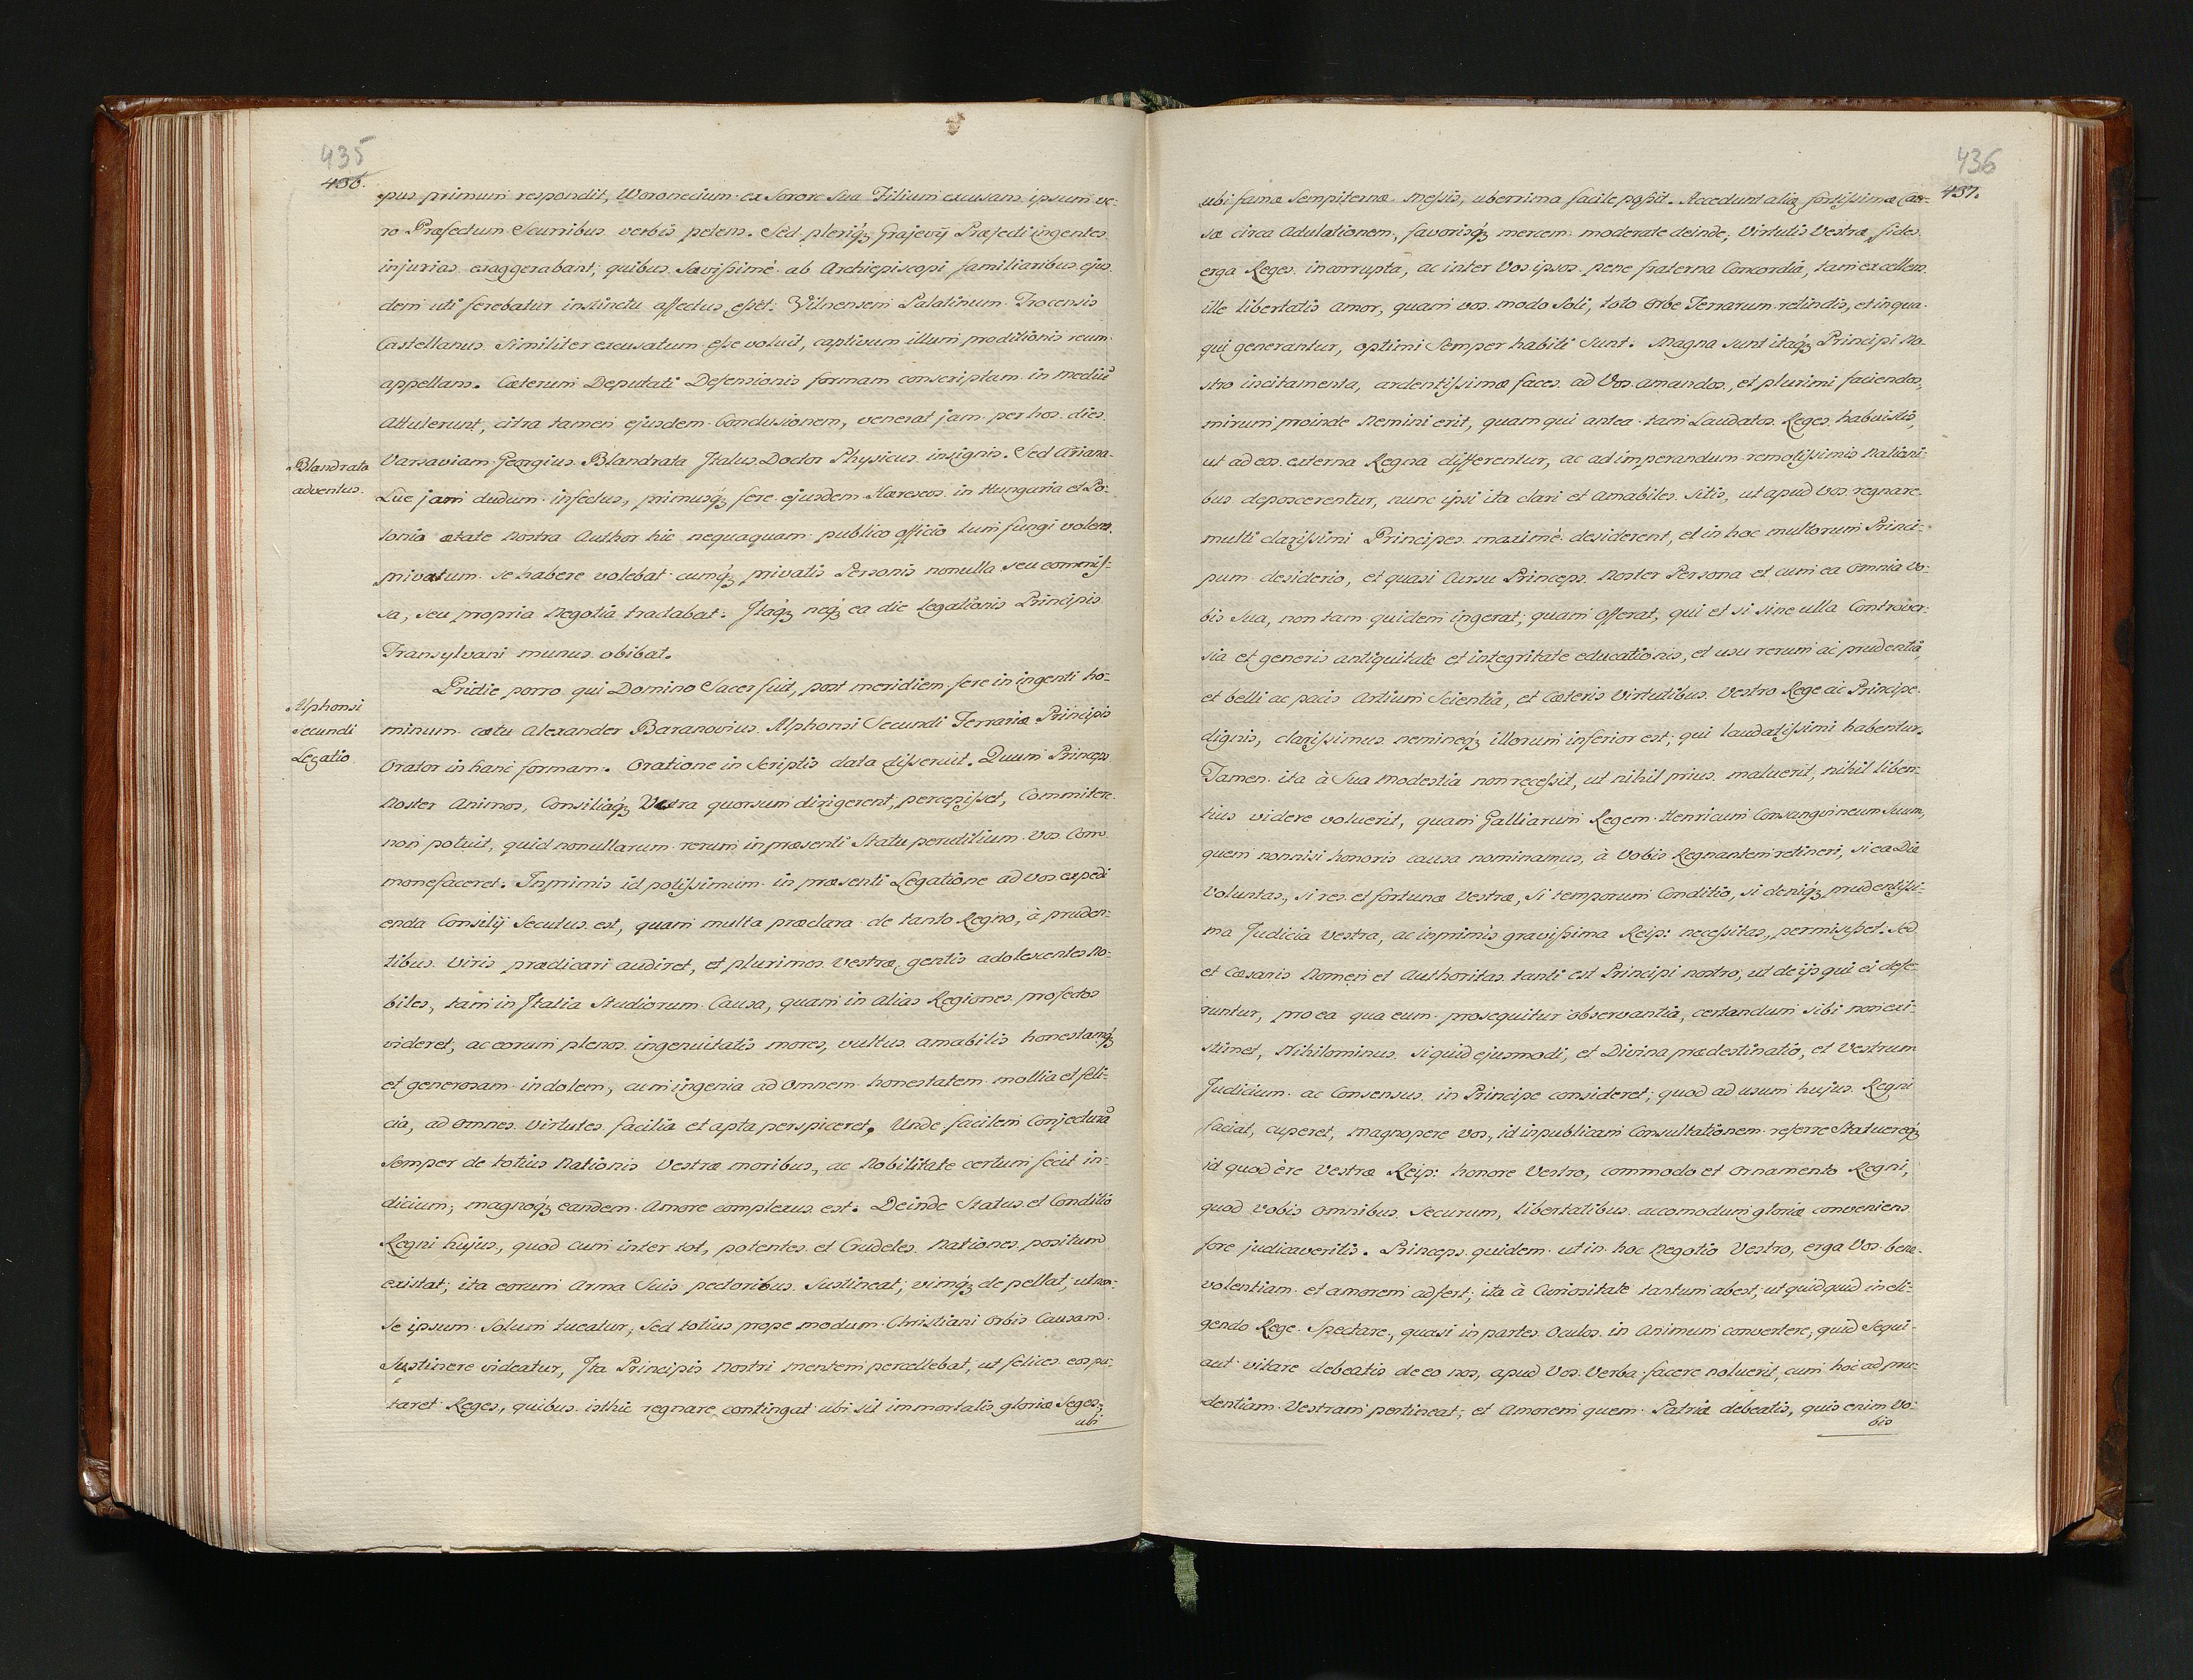 435
436.
pus primum respondit, Woronecium ex Sorore Sua Filium excusans, ipsum ve-
ro Præfectum Scurribus verbis petens. Sed pleriq́ꝫ Grajevij Præfecti ingentes
injurias exaggerabant, quibus Sævissimè ab Archiepiscopi familiaribus ejus
dem uti ferebatur instinctu affectus esset: Vilnensem Palatinum Trocensis
Castellanus Similiter excusatum esse voluit, captivum illum proditionis reum
appellans. Cæterum Deputati Defensionis formam conscriptam in mediū
Attulerunt, citra tamen ejusdem Conclusionem, venerat jam per hos dies
Blandrata
adventus.
Varsaviam Georgius Blandrata Italus Doctor Physicus insignis. Sed Ariana
Lue jam dudum infectus, primusq́ꝫ fere ejusdem Hæreseos in Hungaria et Po-
lonia ætate Nostra Author hic nequaquam publico officio tum fungi volens,
privatum se habere volebat cumq́ꝫ privatis Personis nonulla seu comiss-
sa, seu propria Negotia tractabat. Itaq́ꝫ neq́ꝫ ea die Legationis Principis
Transylvani munus obibat.
Alphonsi
Secundi
Legatio
Pridie porro qui Domino Sacer fuit, post meridiem fere in ingenti ho-
minum cœtu Alexander Baranovius Alphonsi Secundi Ferrariæ Principis
Orator in hanc formam. Oratione in Scriptis data disseruit. Quum Princeps
Noster Animos, Consiliaq́ꝫ Vestra quorsum dirigerent, percepisset, Commitere
non potuit, quid nonullarum rerum in præsenti Statu perutilium Vos Com
monefaceret. Inprimis id potissimum in præsenti Legatione ad vos expedi
enda Consilij Secutus est, quam multa præclara de tanto Regno, à pruden-
tibus Viris prædicari audiret, et plurimos Vestræ gentis adolescentes No-
biles, tam in Italia Studiorum Causa, quam in alias Regiones profectos
videret, ac eorum plenos ingenuitatis mores, vultus amabilis honestamq́ꝫ
et generosam indolem, cum ingenia ad Omnem honestatem mollia et feli-
cia, ad Omnes Virtutes facilia et apta perspiceret, Unde facilem Conjecturā
Semper de totius Nationis Vestræ moribus, ac Nobilitate certum fecit in-
dicium; magnoq́ꝫ eandem Amore complexus est. Deinde Status et Conditio
Regni hujus, quod cum inter tot, potentes et Crudeles Nationes positum
existat; ita eorum Arma Suis pectoribus Sustineat; vimq́ꝫ depellat, ut non
Se ipsum Solum tueatur, Sed totius prope modum Christiani Orbis Causam
Sustinere videatur, Ita Principis Nostri mentem percellebat, ut felices eos pu-
taret Reges, quibus isthic regnare contingat ubi sit immortalis gloriæ Seges,
ubi
436
437.
ubi famæ Sempiternæ Messis, uberrima facile possit. Accedunt aliæ fortissimæ Cau-
sæ circa Adulationem, favorisq́ꝫ mercem moderate deinde, Virtutis Vestræ, fides
erga Reges incorrupta, ac inter Vos ipsos pene fraterna Concordia, tam excellens
ille libertatis Amor, quam vos modo Soli, toto Orbe Terrarum retinetis, et in qua
qui generantur, optimi Semper habiti Sunt. Magna sunt itaq́ꝫ Principi No-
stro incitamenta, ardentissimæ faces ad Vos amandos, et plurimi faciendos,
mirum proinde Nemini erit, quam qui antea tam Laudatos Reges habuistis,
ut ad eos externa Regna differentur, ac ad imperandum remotissimis Nationi-
bus deposcerentur, nunc ipsi ita clari et Amabiles Sitis, ut apud Vos regnare
multi clarissimi Principes maximè desiderent, et in hoc multorum Princi-
pum desiderio, et quasi Cursu Princeps Noster Persona et cum ea Omnia Vo-
bis Sua, non tam quidem ingerat; quam Offerat, qui et si sine ulla Controver-
sia et generis antiquitate et integritate educationis, et usu rerum ac prudentia,
et belli ac pacis Artium Scientia, et Cæteris Virtutibus Vestro Rege ac Principe
dignis, clarissimus nemineq́ꝫ illorum inferior est; qui laudatissimi habentur.
Tamen ita à Sua Modestia non recessit, ut nihil prius maluerit, nihil liben-
tius videre voluerit, quam Galliarum Regem Henricum Consangvineum Suum,
quem nonnisi honoris causa nominamus, à Vobis Regnantem retineri, si ea Diæ
Voluntas, si res et fortunæ Vestræ, Si temporum Conditio, si deniq́ꝫ prudentissi-
ma Judicia Vestra, ac inprimis gravissima Reip: necessitas, permisisset. Sed
et Cæsaris Nomen et Authoritas tanti est Principi nostro, ut de ijs qui ei defe-
runtur, pro ea qua eum prosequitur observantia, certandum sibi non exi-
stimet, Nihilominus Si quid ejusmodi, et Divina prædestinatio, et Vestrum
Judicium ac Consensus in Principe consideret; quod ad usum hujus Regni
faciat, cuperet, magnopere vos, id in publicam Consultationem referre Statuereq́ꝫ
id quod ère Vestra Reip: honore Vestro, commodo et Ornamento Regni,
quod vobis Omnibus Securum, libertatibus accomodum gloriæ conveniens
fore judicaveritis. Princeps quidem ut in hoc Negotio Vestro, erga Vos bene-
volentiam et amorem adfert; ita à Curiositate tantum abest, ut quidquid in eli-
gendo Rege Spectare, quasi in partes Oculos in Animum convertere, quid Sequi
aut vitare debeatis de eo nos, apud Vos Verba facere noluerit, cum hoc ad pru-
dentiam Vestram pertineat, et Amorem quem Patriæ debeatis, quis enim Vo-
bis